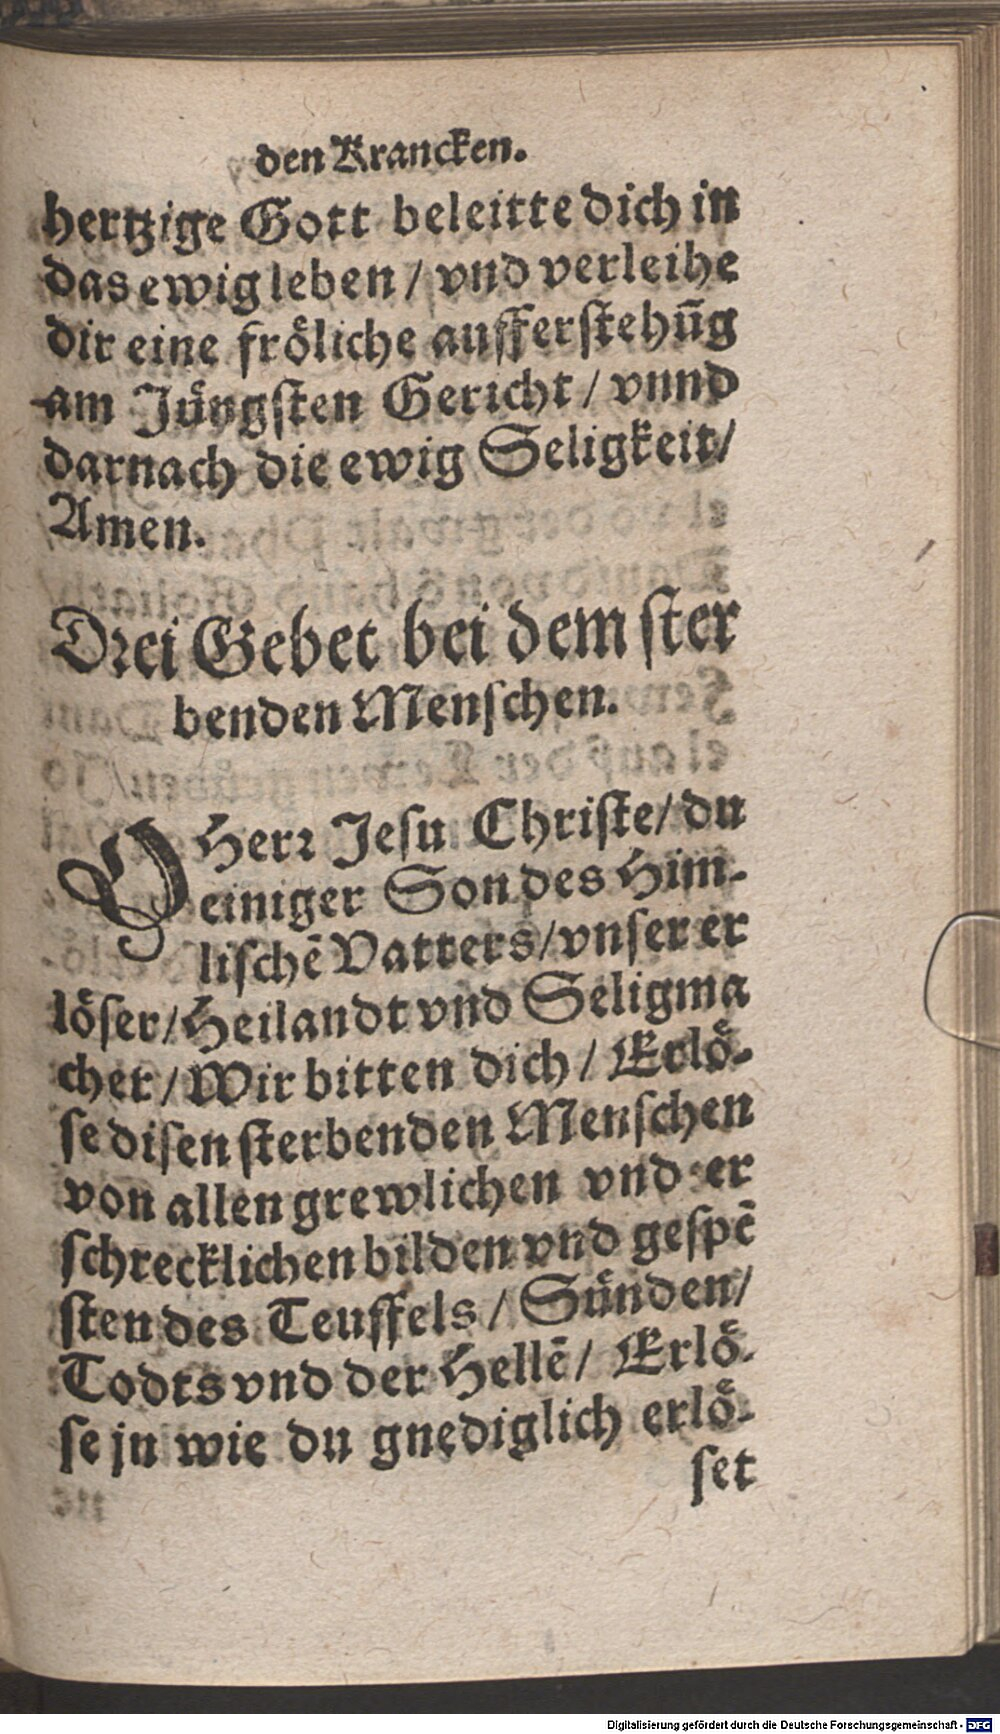 den Krancken.
hertzige Gott beleitte dich in
das ewig leben / vnd verleihe
dir eine froͤliche aufferſtehūg
am Juͤngſten Gericht / vnnd
darnach die ewig Seligkeit/
Amen.
Drei Gebet bei dem ſter
benden Menſchen.
O Herꝛ Jeſu Chriſte/ du
einiger Son des Him-
liſchē Vatters/ vnſer er
loͤſer/ Heilandt vnd Seligma
cher / Wir bitten dich / Erloͤ-
ſe diſen ſterbenden Menſchen
von allen grewlichen vnd er
ſchrecklichen bilden vnd geſpē
ſten des Teuffels / Suͤnden/
Todts vnd der Hellē/ Erloͤ-
ſe jn wie du gnediglich erloͤ-
ſet
Digitalisierung gefördert durch die Deutsche Forschungsgemeinschaft - DFG